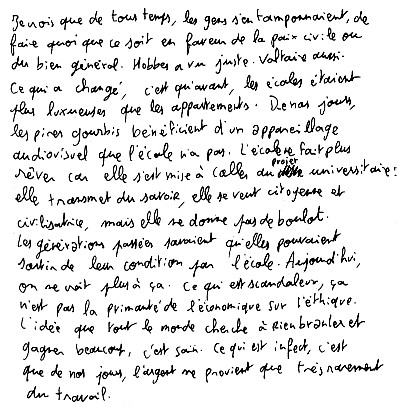 Je crois que de tous temps, les gens s'en tamponnaient, de
faire quoi que ce soit en faveur de la paix civile ou
du bien général. Hobbes a vu juste. Voltaire aussi.
Ce qui a changé, c'est qu'avant, les écoles étaient
plus luxueuses que les appartements. De nos jours,
les pires gourbis bénéficient d'un appareillage
audiovisuel que l'école n'a pas. L'école ne fait plus
rêver car elle s'est mise à caller au projet universitaire :
elle transmet du savoir, elle se veut citoyenne et
civilisatrice, mais elle ne donne pas de boulot.
Les générations passées savaient qu'elles pouvaient
sortir de leur condition par l'école. Aujourd'hui,
on ne croit plus à ça. Ce qui est scandaleux, ça
n'est pas la primauté de l'économique sur l'éthique.
L'idée que tout le monde cherche à rien branler et
gagner beaucoup, c'est sain. Ce qui est infect, c'est
que de nos jours, l'argent ne provient que très rarement
du travail.